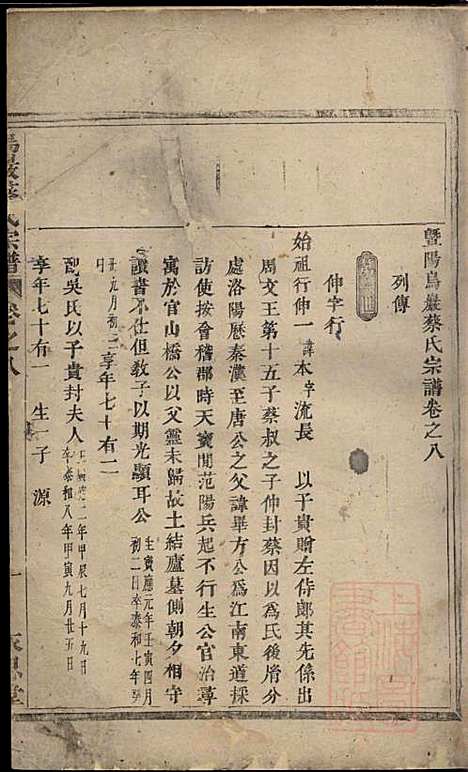 暨陽烏巖蔡氏宗譜卷之八
列傳
仲字行
始祖行仲一諱本字流長 以子貴贈左侍郎其先係出
周文王第十五子蔡叔之子仲封蔡因以為氏後胄分
處洛陽歷秦漢至唐公之父諱畢方公為江南東道採
訪使按會稽郡時天寶間范陽兵起不行生公官治尋
寓於官山橋公以父靈未歸故土結廬墓側朝夕相守
讀書不仕但教子以期光顯耳公生寶應元年壬寅四月初二日卒泰和七年癸
丑九月初二日享年七十有二
配吳氏以子貴封夫人生廣德二年甲辰七月十九日卒泰和八年甲寅九月廿五日
享年七十有一 生一子 源
烏巖蔡氏宗譜 卷之八
一
永思堂